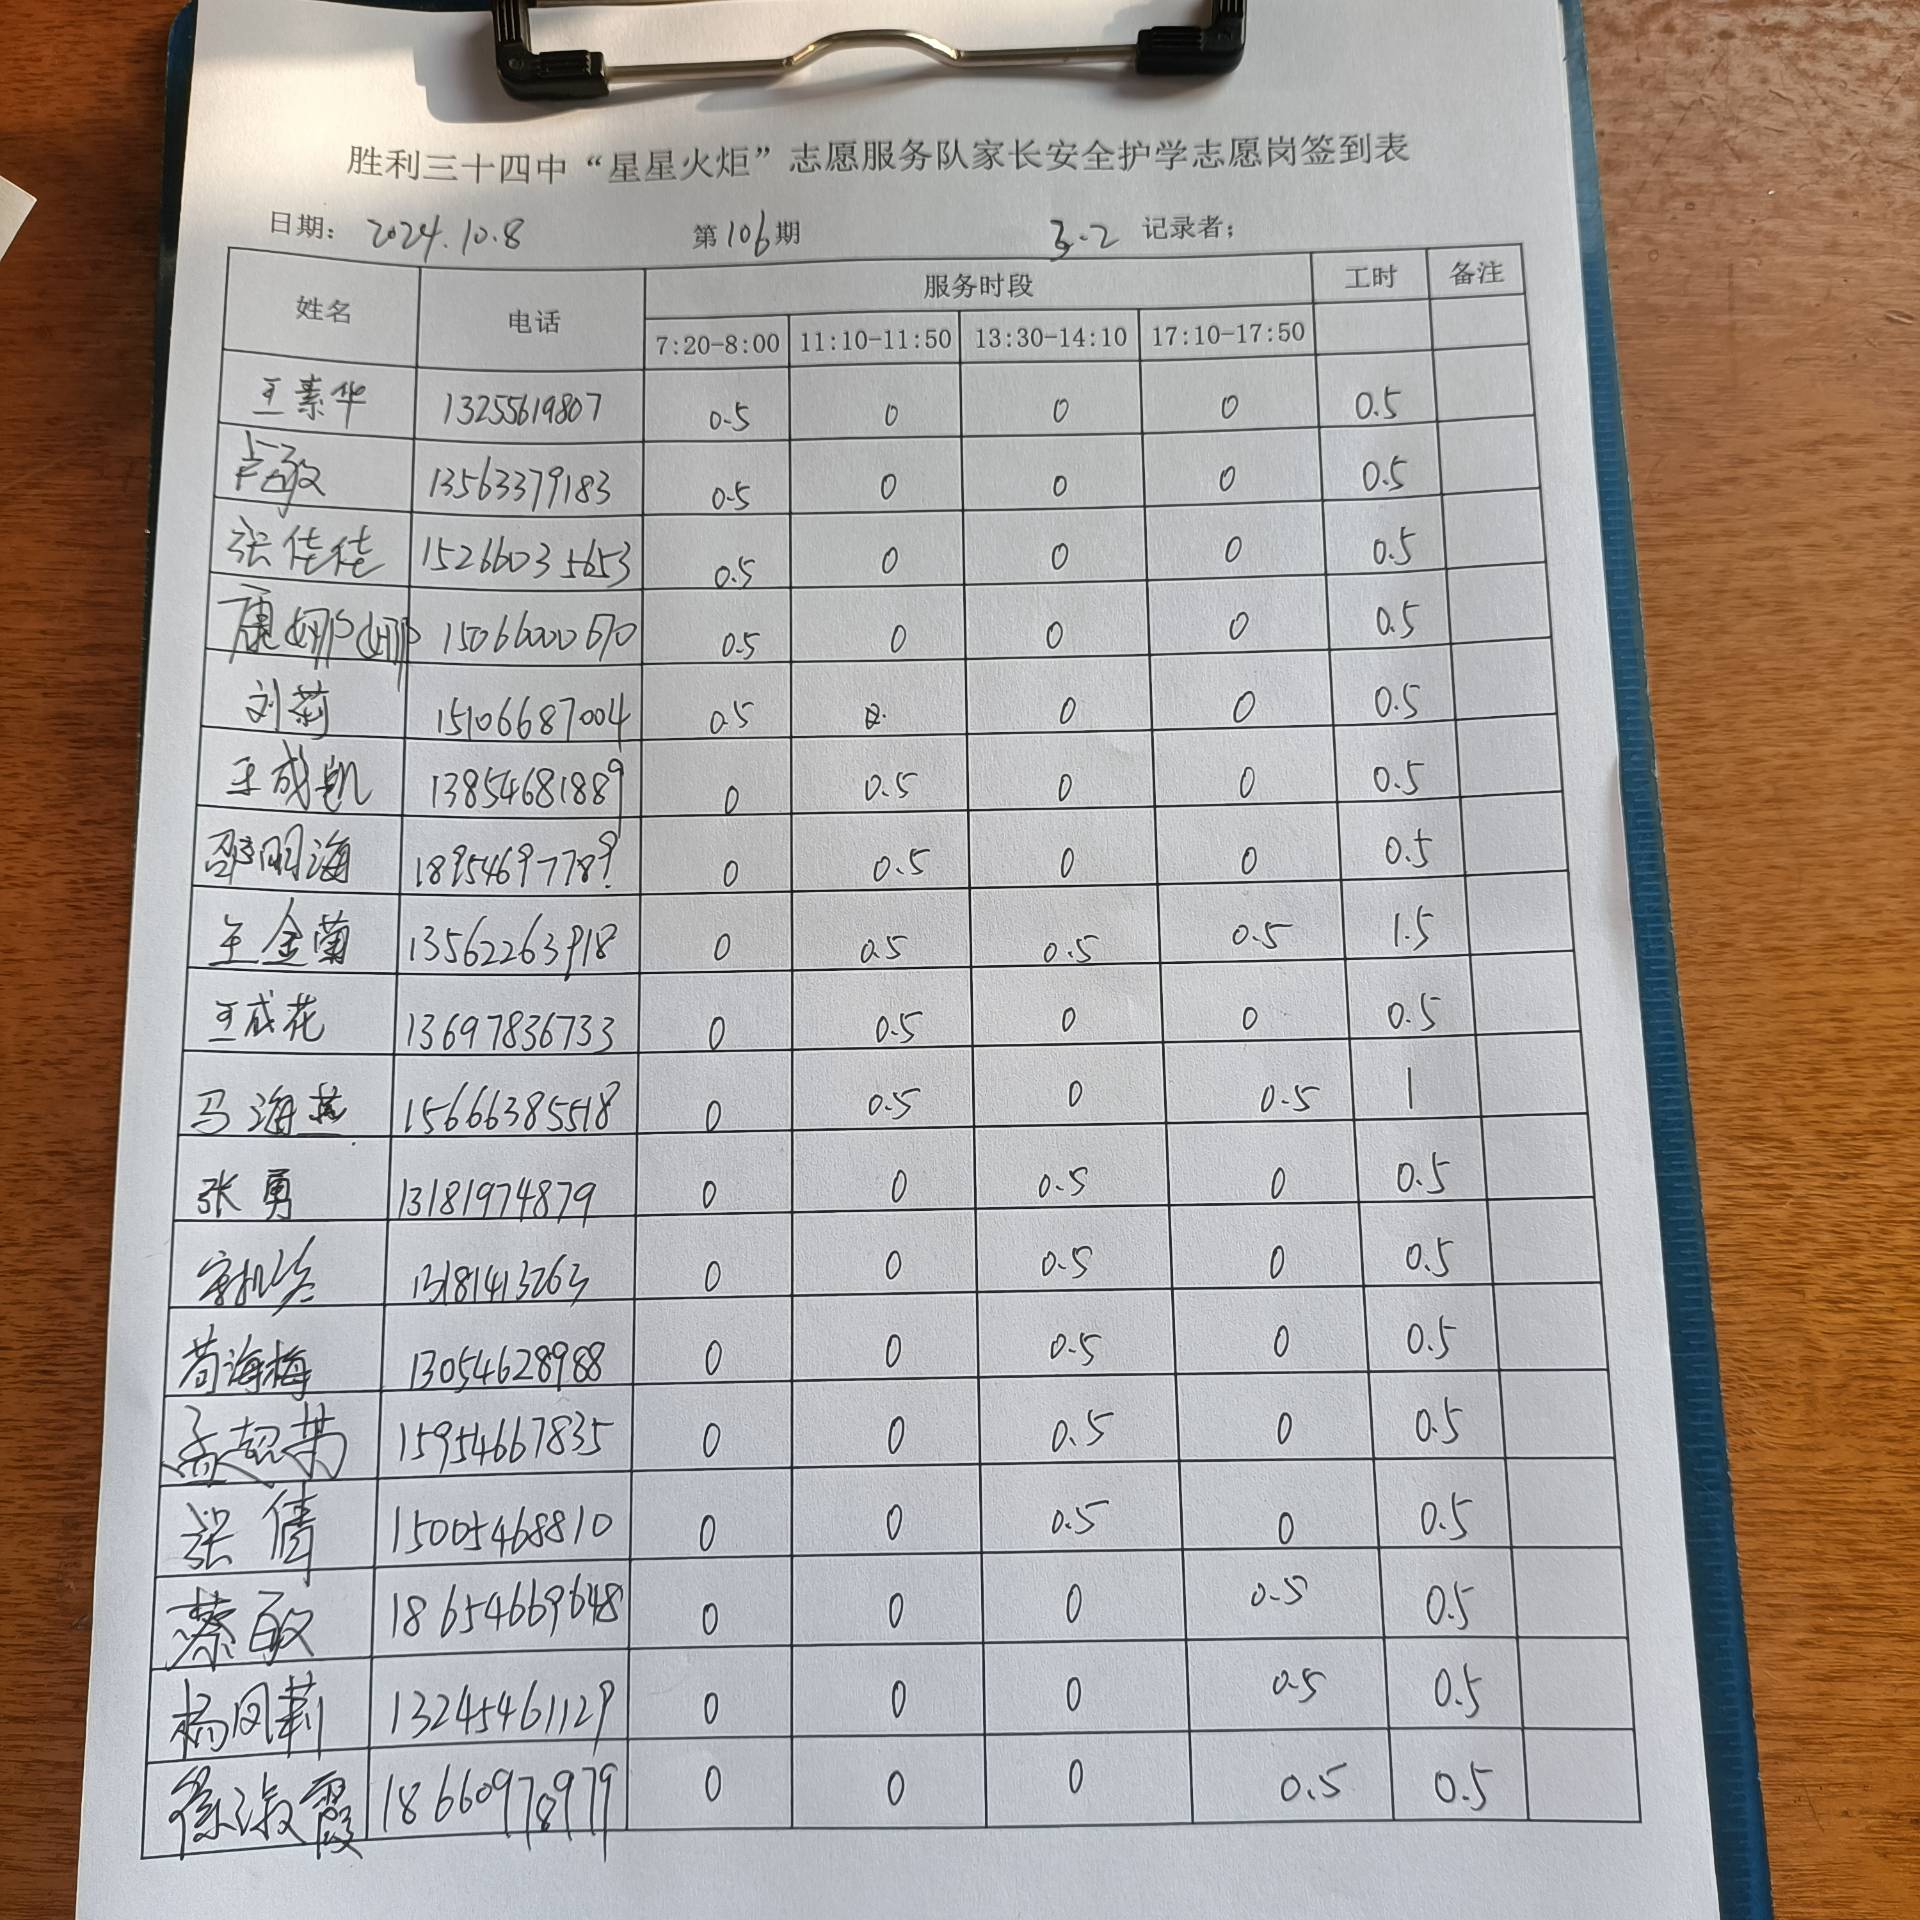 胜利三十四中“星星火炬”志愿服务队家长安全护学志愿岗签到表
日期: 2024.10.8 第106期 3.2 记录者;
姓名 电话 服务时段 工时 备注
7:20-8:00 11:10-11:50 13:30-14:10 17:10-17:50
王素华 13255619807 0.5 0 0 0 0.5
卢敏 13563379183 0.5 0 0 0 0.5
张佳佳 15266035653 0.5 0 0 0 0.5
康娜娜 15066000670 0.5 0 0 0 0.5
刘莉 15106687004 0.5 0 0 0 0.5
王成凯 13854681889 0 0.5 0 0 0.5
邵明海 18954697789 0 0.5 0 0 0.5
王金菊 13562263918 0 0.5 0.5 0.5 1.5
王成花 13697836733 0 0.5 0 0 0.5
马海燕 15666385518 0 0.5 0 0.5 1
张勇 13181974879 0 0 0.5 0 0.5
13181413263 0 0 0.5 0 0.5
苟海梅 13054628988 0 0 0.5 0 0.5
孟超英 15954667835 0 0 0.5 0 0.5
张倩 15005468810 0 0 0.5 0 0.5
蔡敏 18654669648 0 0 0 0.5 0.5
杨凤莉 13245461129 0 0 0 0.5 0.5
徐淑霞 18660978979 0 0 0 0.5 0.5